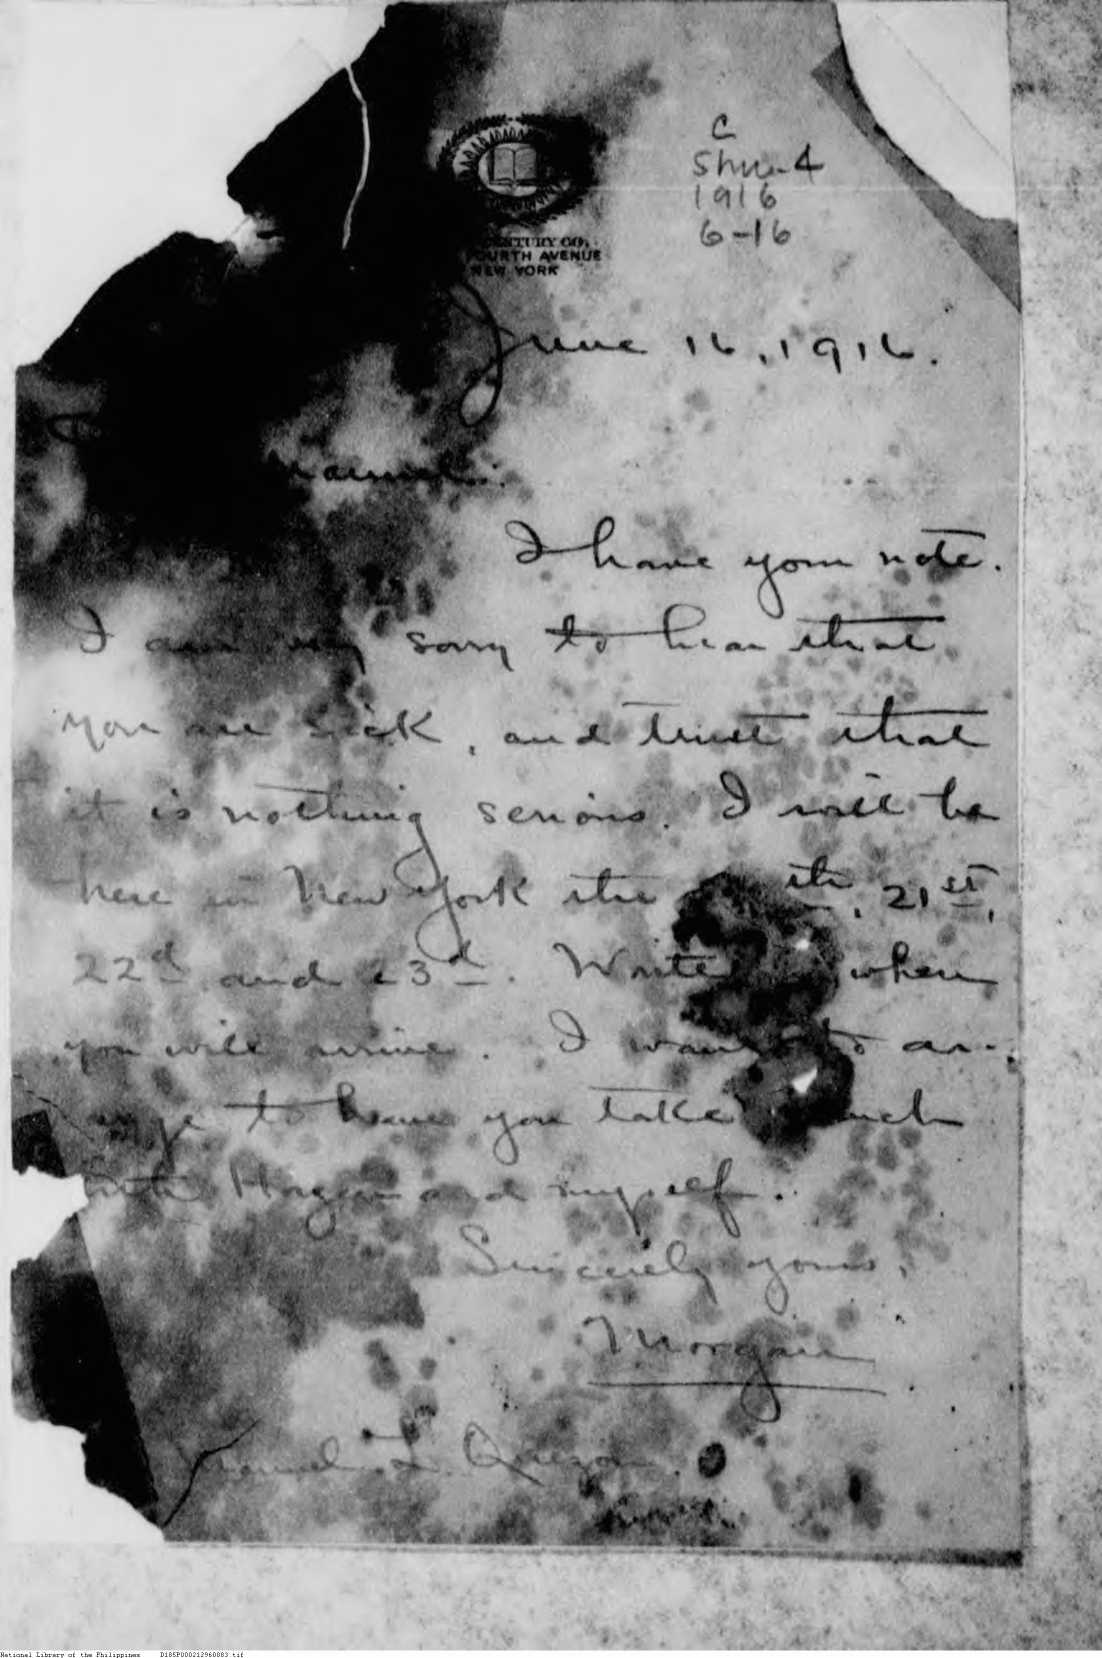 C
1916
6-16
CENTURY CO.
FOURTH AVENUE
NEW YORK
June 16, 1916.
Manuel:
I have your note.
I am very sorry to hear that
you are sick, and trust that
it is nothing serious. I will be
here in New York the th, 21st,
22d and 23d. Write when
you will arrive. I want to ar-
range to have you take lunch
with and myself.
Sincerely yours,
Morgan
Manuel L. Quezon
National Library of the Philippines D185P000212960883.tif